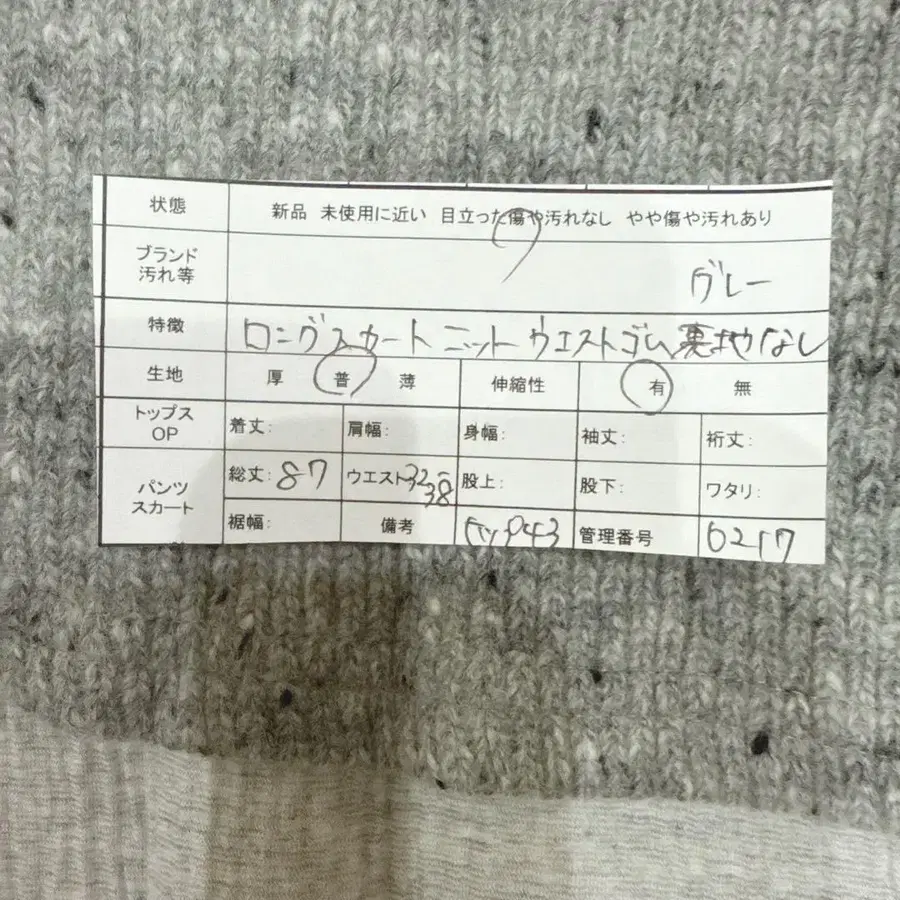 状態 新品 未使用に近い 目立った傷や汚れなし やや傷や汚れあり
ブランド
汚れ等 グレー
特徴 ロングスカート ニット ウエストゴム 裏地なし
生地 厚 普 薄 伸縮性 有 無
トップス
OP 着丈: 肩幅: 身幅: 袖丈: 裄丈:
パンツ
スカート 総丈: 87 ウエスト 32~38 股上: 股下: ワタリ:
裾幅: 備考 ヒップ43 管理番号 6217